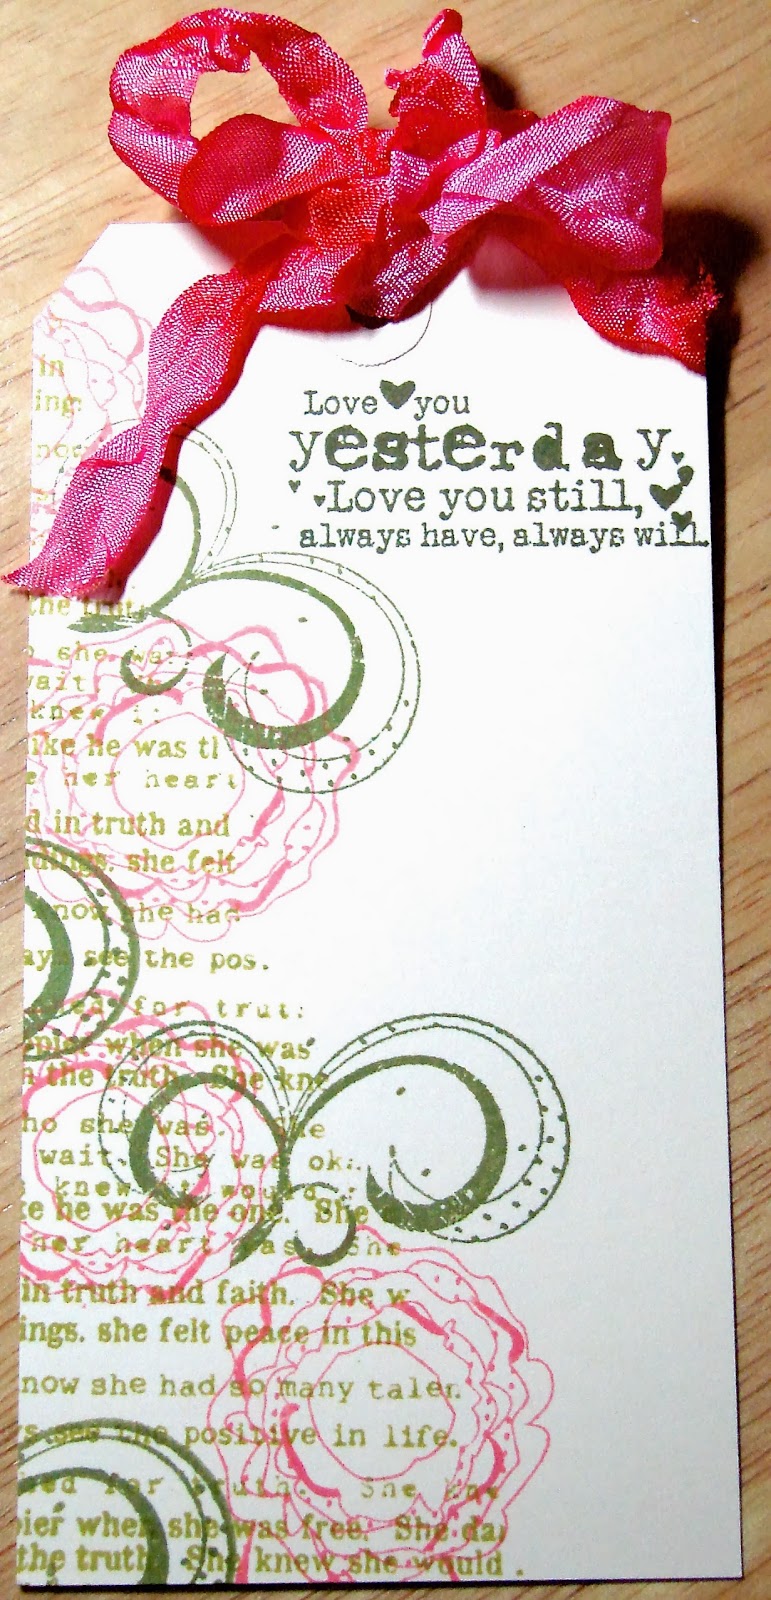 Love you
yesterday,
Love you still,
always have, always will.
in
ing
the truth
she wa
wait,
knew it
like he was th
her heart
d in truth and
dings. she felt
know she had
ays see the pos.
for trut
pier when she was
n the truth. She kne
ho she was. She
wait. She was ok
knew it would
ke he was the one. She
her heart was She
in truth and faith. She w
ings. she felt peace in this
now she had so many talen
s see the positive in life.
ed for truth. She kne
pier when she was free. She da
the truth. She knew she would.